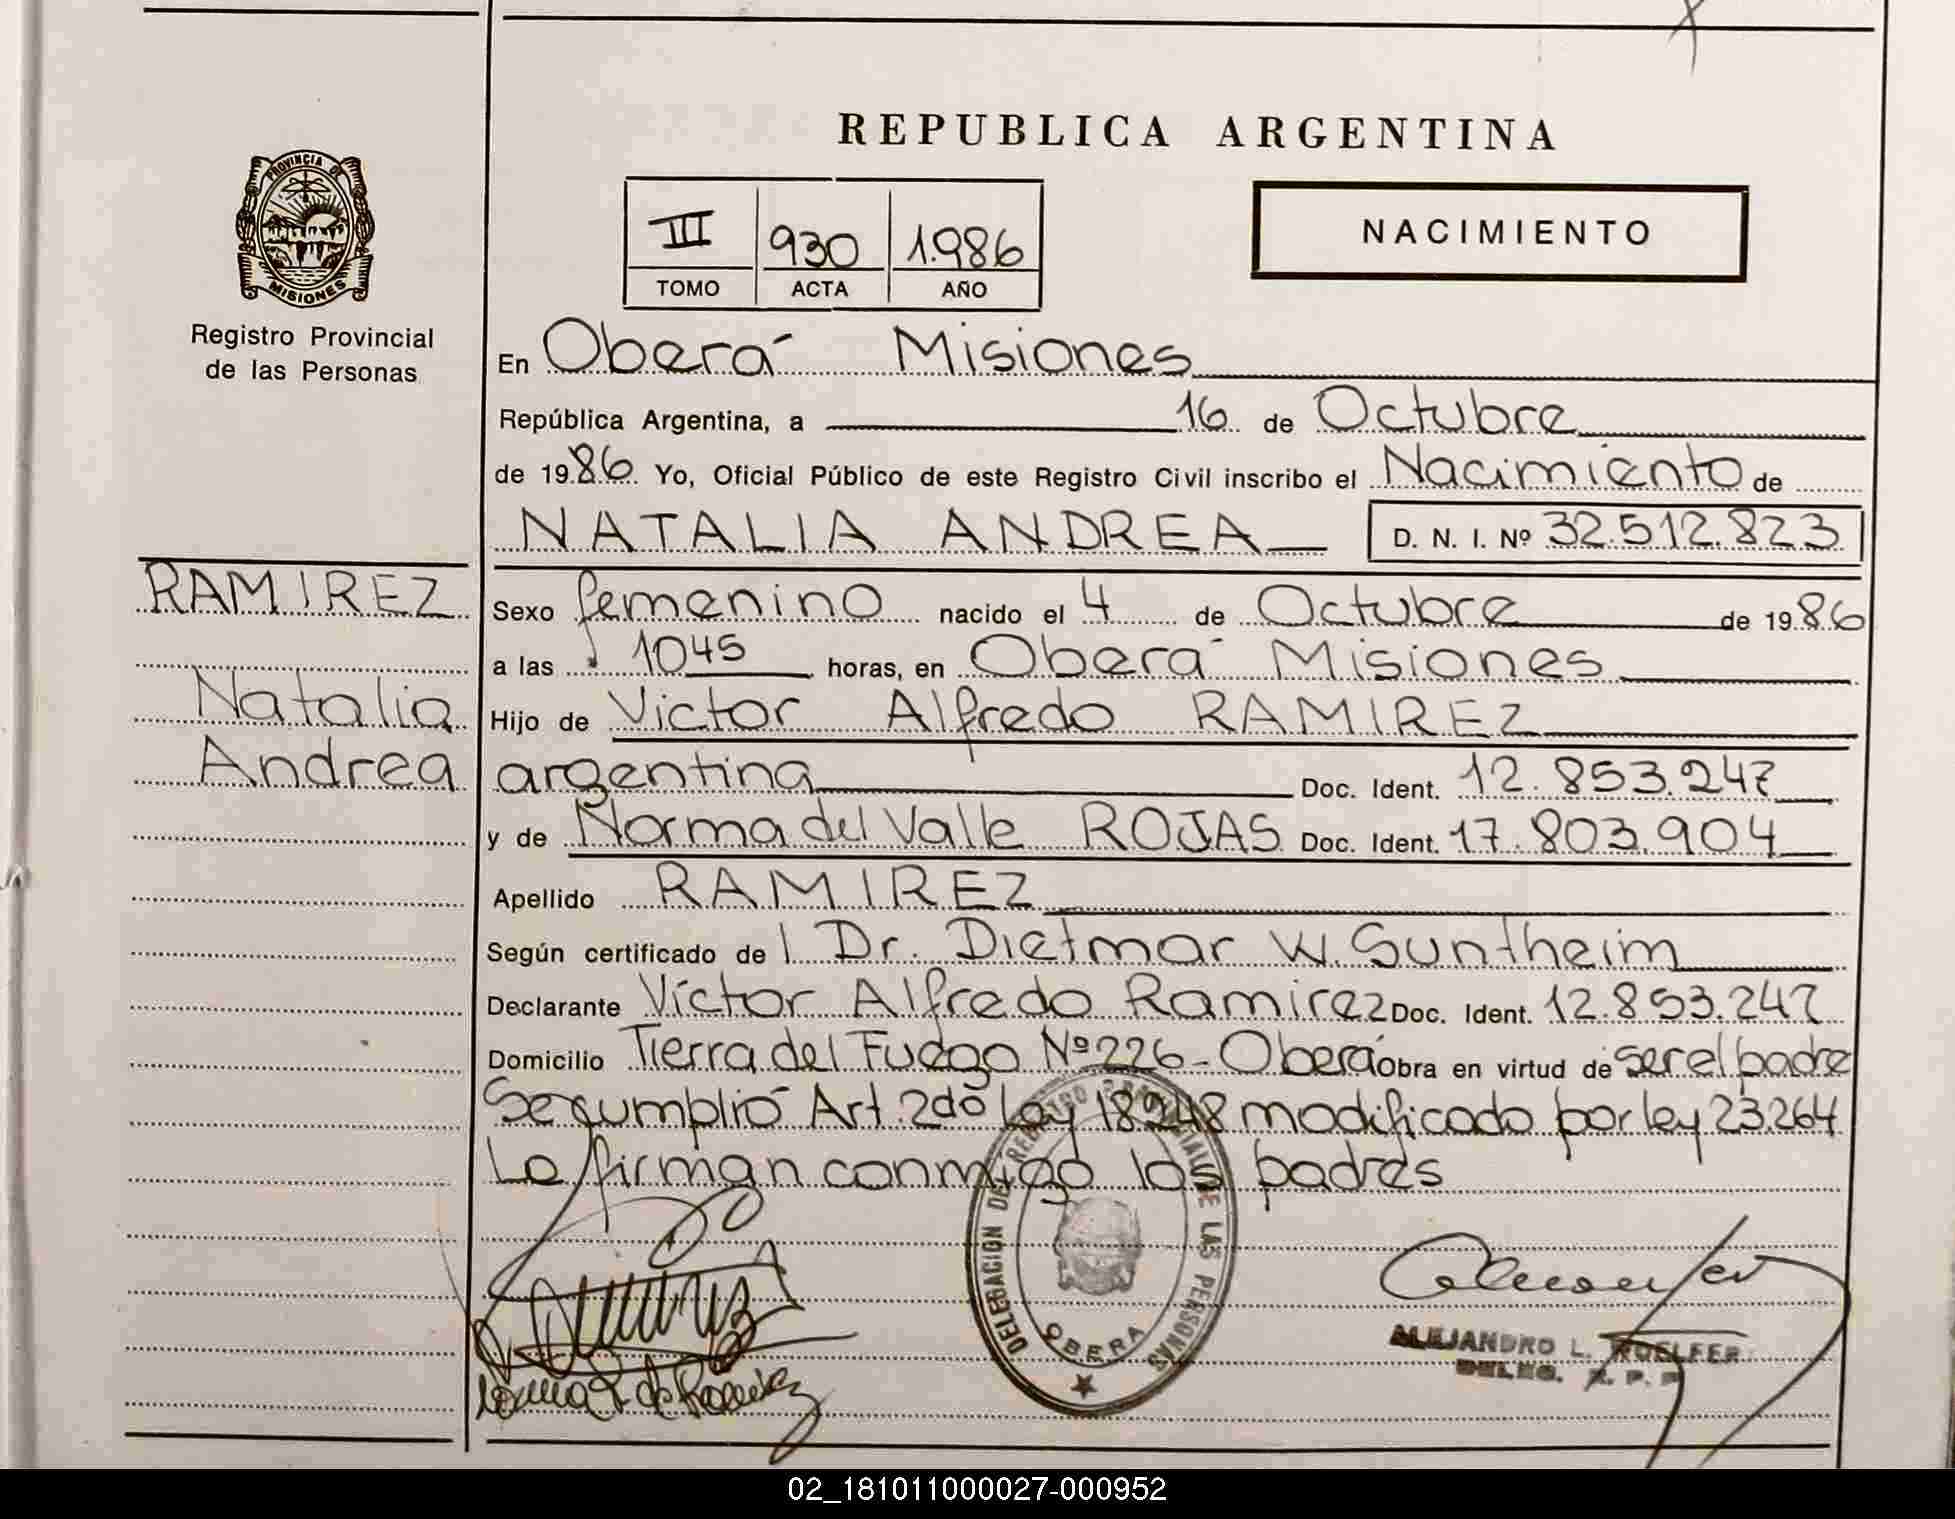 REPUBLICA ARGENTINA
PROVINCIA DE
MISIONES
Registro Provincial
de las Personas
III 930 1.986
TOMO ACTA AÑO
NACIMIENTO
En Oberá Misiones
República Argentina, a 16 de Octubre
de 1986 Yo, Oficial Público de este Registro Civil inscribo el Nacimiento de
NATALIA ANDREA D. N. I. Nº 32.512.823
RAMIREZ
Natalia
Andrea
Sexo femenino nacido el 4 de Octubre de 1986
a las 1045 horas, en Oberá Misiones
Hijo de Victor Alfredo RAMIREZ
argentina Doc. Ident. 12.853.247
y de Norma del Valle ROJAS Doc. Ident. 17.803.904
Apellido RAMIREZ
Según certificado de l Dr. Dietmar W. Suntheim
Declarante Víctor Alfredo Ramirez Doc. Ident. 12.853.247
Domicilio Tierra del Fuego Nº 226 - Oberá obra en virtud de ser el padre
Se cumplió Art. 2do Ley 18248 modificado por ley 23.264
Lo firman conmigo los padres
DELEGACION DEL REGISTRO PROVINCIAL DE LAS PERSONAS
OBERA
ALEJANDRO L. ROELFER
DELEG. R. P. P.
02_181011000027-000952